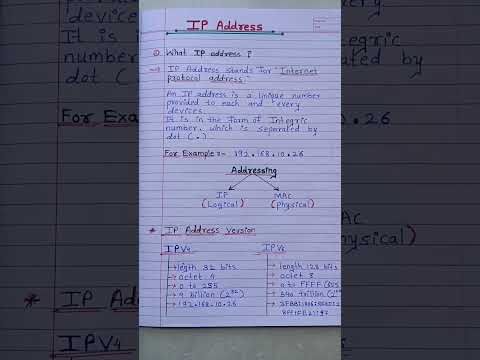 IP Address
What IP address ?
IP Address stands for "Internet
protocol address."
An IP address is a unique number
provided to each and every
devices.
It is in the form of Integric
number, which is separated by
dot (.)
For Example :- 192.168.10.26
Addressing
IP
(Logical)
MAC
(physical)
* IP Address version
IPV4
→ legth 32 bits
→ octet 4
→ 0 to 255
→ 4 billion (2^32)
→ 192.168.10.26
IPV6
→ length 128 bits
→ octet 8
→ 0 to FFFF
→ 340 trillion